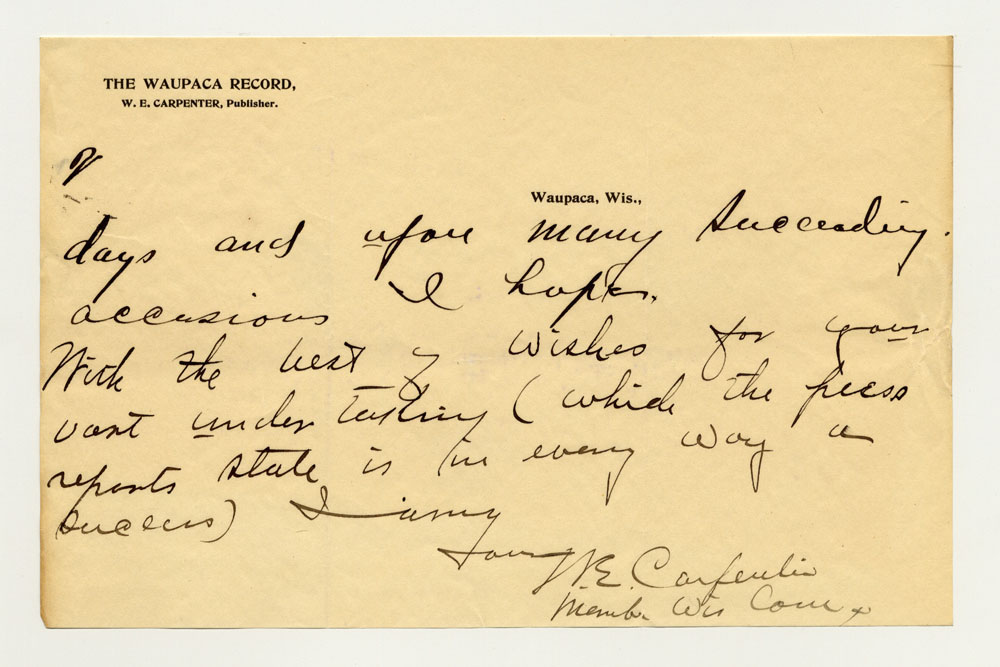 THE WAUPACA RECORD,
W. E. CARPENTER, Publisher.
Waupaca, Wis.,
days and upon many succeeding
occasions I hope.
With the best of wishes for your
vast undertaking (which the press
reports state is in every way a
success) I am
Yours
W. E. Carpenter
Memb. Wis Com